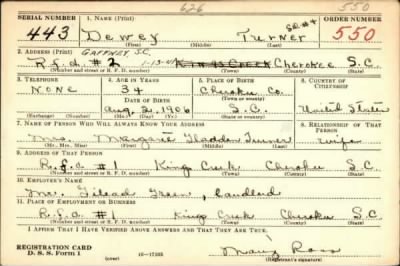 626
550
SERIAL NUMBER 1. NAME (Print) ORDER NUMBER
443 Dewey Turner 550
(First) (Middle) (Last)
2. ADDRESS (Print) GAFFNEY, S.C.
R.f.d. #2 1-13-41 Kings Creek Cherokee S.C.
(Number and street or R. F. D. number) (Town) (County) (State)
3. TELEPHONE 4. AGE IN YEARS 5. PLACE OF BIRTH 6. COUNTRY OF CITIZENSHIP
None 34 Cherokee Co.
DATE OF BIRTH (Town or county)
Aug. 2, 1906 S.C. United States
(Exchange) (Number) (Mo.) (Day) (Yr.) (State or country)
7. NAME OF PERSON WHO WILL ALWAYS KNOW YOUR ADDRESS 8. RELATIONSHIP OF THAT PERSON
Mrs. Margaret Turner wife
(Mr., Mrs., Miss) (First) (Middle) (Last)
9. ADDRESS OF THAT PERSON
R.f.d. #1 Kings Creek Cherokee S.C.
(Number and street or R. F. D. number) (Town) (County) (State)
10. EMPLOYER'S NAME
Mr. Gilead Green, Landlord
11. PLACE OF EMPLOYMENT OR BUSINESS
R.f.d. #1 Kings Creek Cherokee S.C.
(Number and street or R. F. D. number) (Town) (County) (State)
I AFFIRM THAT I HAVE VERIFIED ABOVE ANSWERS AND THAT THEY ARE TRUE.
REGISTRATION CARD
D. S. S. Form 1 (over)